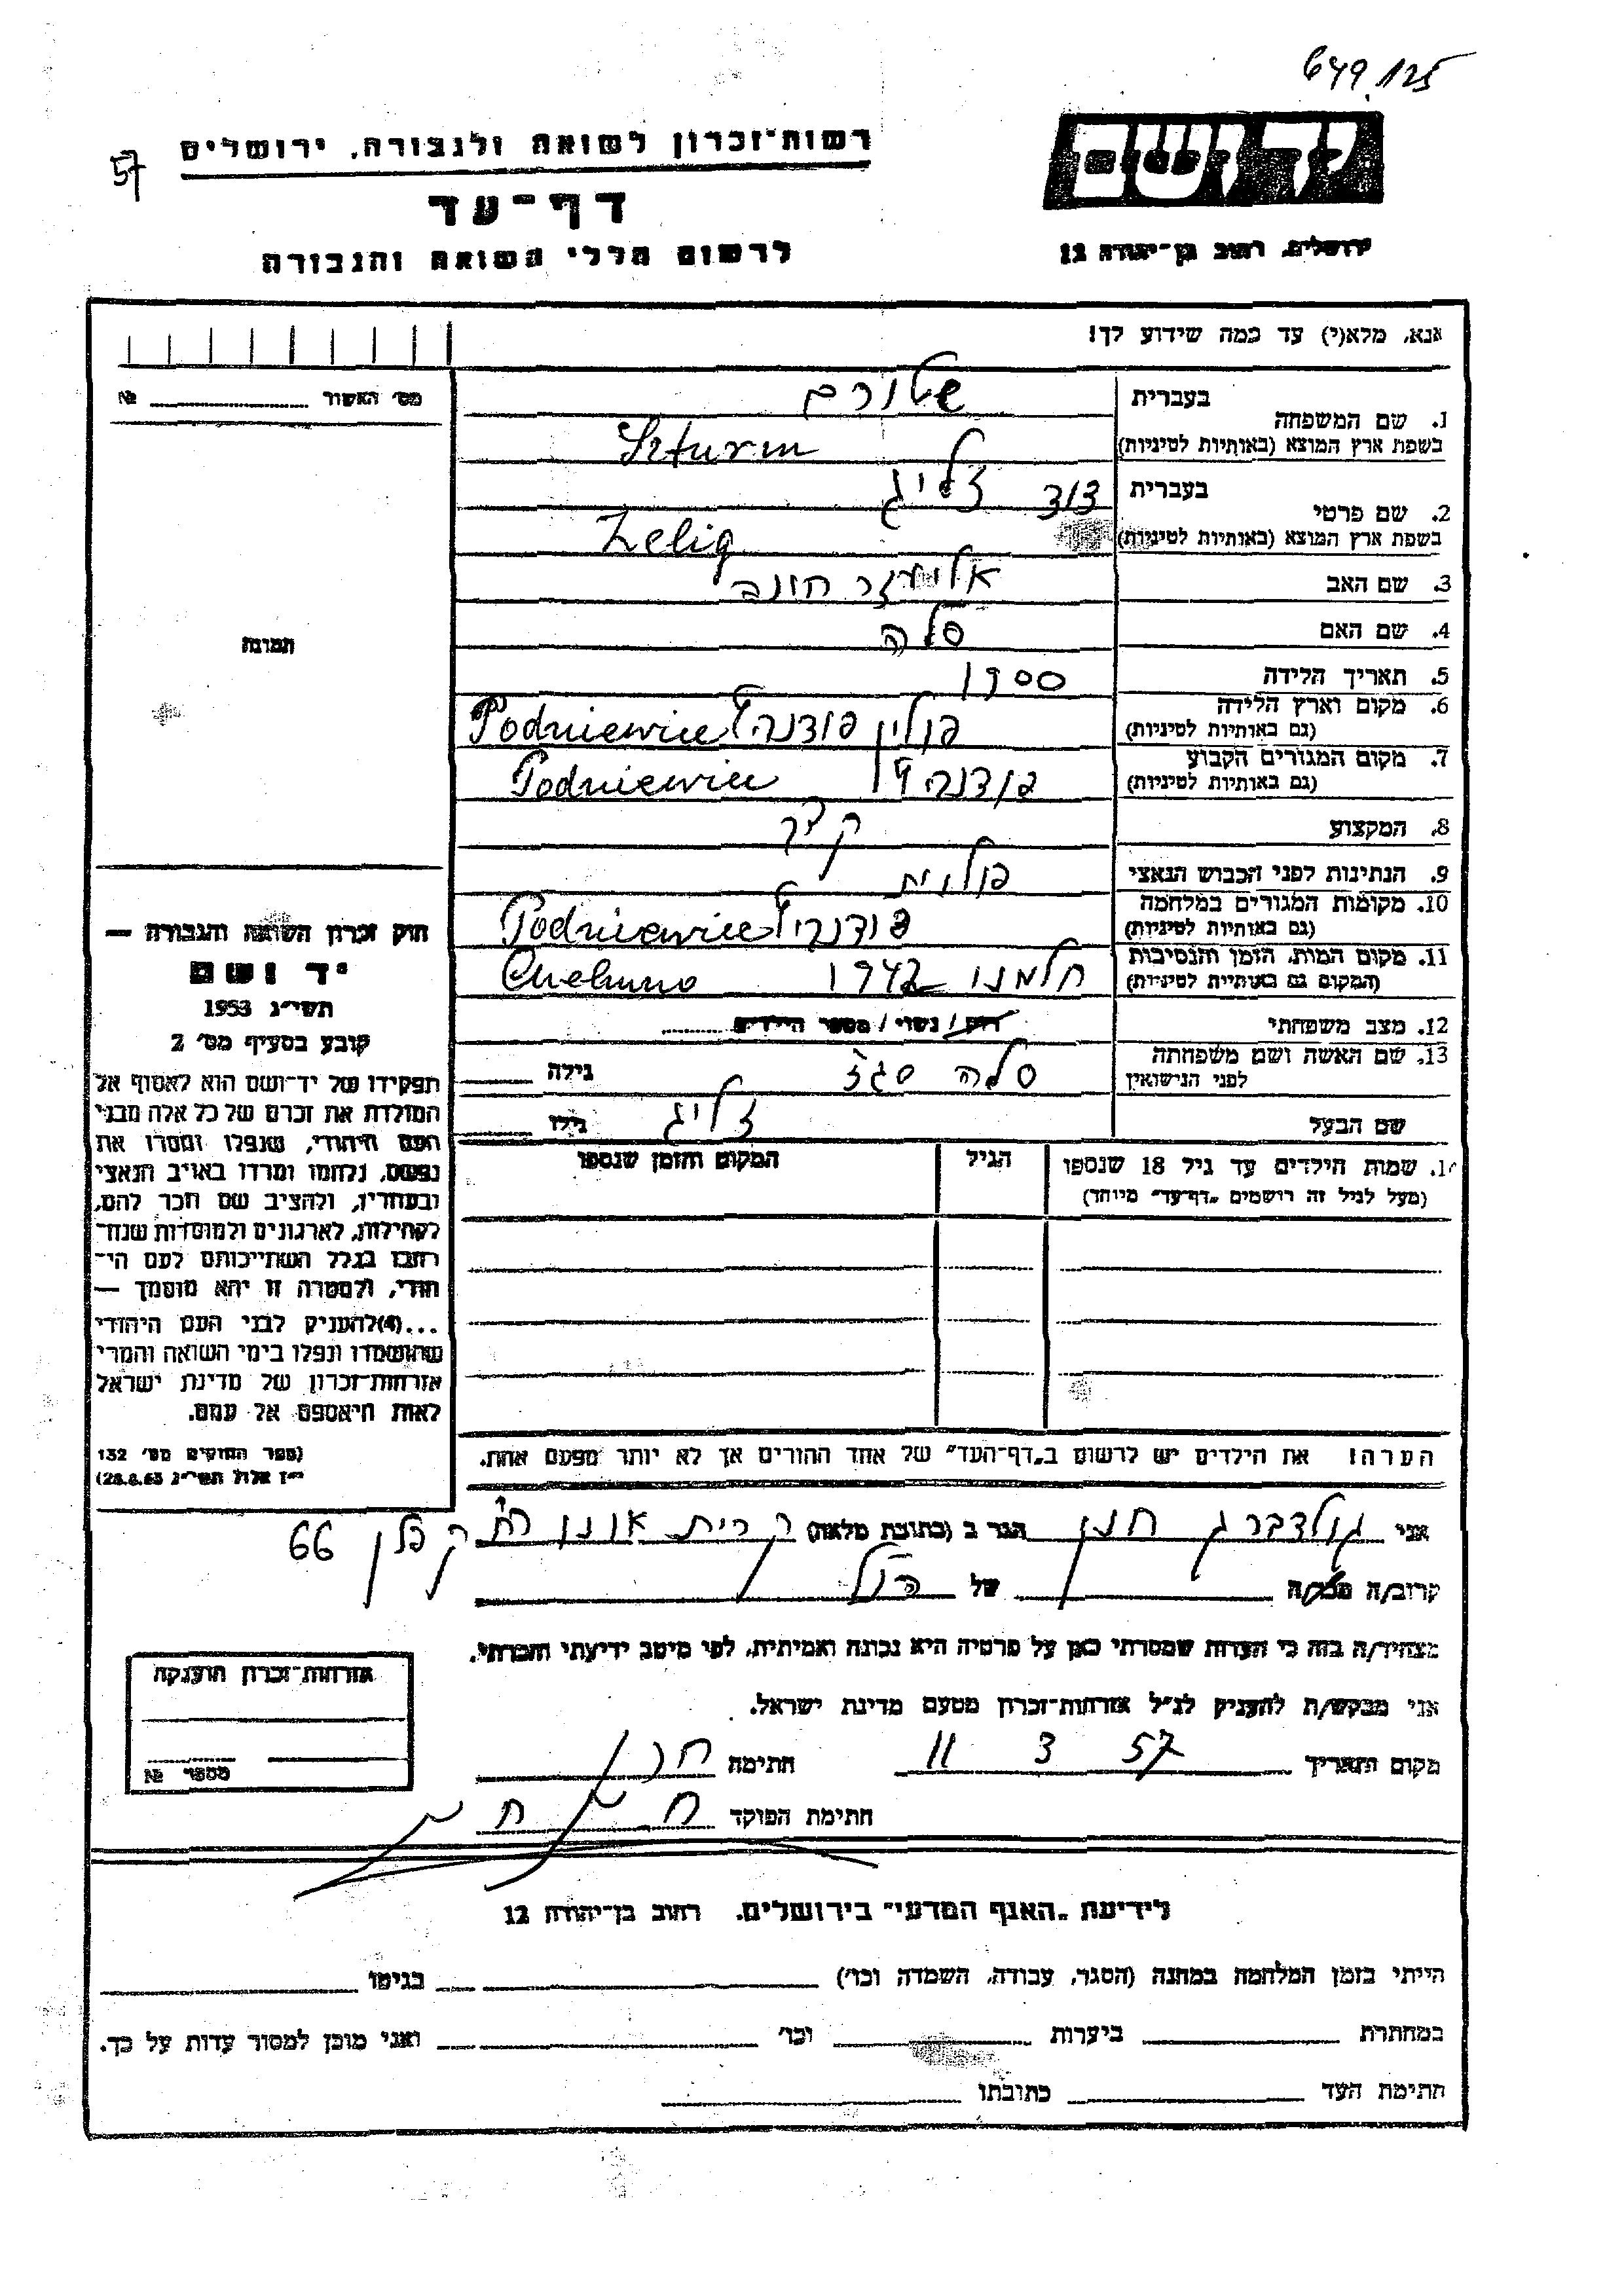 649.125
יד ושם
רשות־זכרון לשואה ולגבורה, ירושלים
57
דף־עד
ירושלים, רחוב בן־יהודה 12
לרשום חללי השואה והגבורה
אנא, מלא(י) עד כמה שידוע לך!
מס׳ האשור № 
1. שם המשפחה
בעברית שטורם
בשפת ארץ המוצא (באותיות לטיניות) Szturm
2. שם פרטי
בעברית דוד זליג
בשפת ארץ המוצא (באותיות לטיניות) Zelig
3. שם האב אליעזר חונה
4. שם האם סלה
תמונה
5. תאריך הלידה 1900
6. מקום וארץ הלידה
(גם באותיות לטיניות) פולין Podniewice
7. מקום המגורים הקבוע
(גם באותיות לטיניות) Podniewice
8. המקצוע
9. הנתינות לפני הכבוש הנאצי פולנית
10. מקומות המגורים במלחמה
(גם באותיות לטיניות) Podniewice
11. מקום המות, הזמן והנסיבות
(המקום גם באותיות לטיניות) חלמנו 1942 Chelmno
12. מצב משפחתי רווק / נשוי / מספר הילדים
13. שם האשה ושם משפחתה
לפני הנישואין סלה גילה
שם הבעל זליג גילו
חוק זכרון השואה והגבורה —
יד ושם
תשי״ג 1953
קובע בסעיף מס׳ 2
תפקידו של יד־ושם הוא לאסוף אל
המולדת את זכרם של כל אלה מבני
העם היהודי, שנפלו ומסרו את
נפשם, נלחמו ומרדו באויב הנאצי
ובעוזריו, ולהציב שם וזכר להם,
לקהילות, לארגונים ולמוסדות שנח־
רבו בגלל השתייכותם לעם הי־
הודי, ולמטרה זו יהא מוסמך —
...(4)להעניק לבני העם היהודי
שהושמדו ונפלו בימי השואה והמרי
אזרחות־זכרון של מדינת ישראל
לאות היאספם אל עמם.
(ספר החוקים מס׳ 132
י״ז אלול תשי״ג 28.8.53)
שמות הילדים עד גיל 18 שנספו
(מעל לגיל זה רושמים „דף־עד״ מיוחד)
הגיל
המקום והזמן שנספו
הערה! את הילדים יש לרשום ב„דף־העד״ של אחד ההורים אך לא יותר מפעם אחת.
אני גולדברג חנן הגר ב (כתובת מלאה) קרית אונו רח׳ קפלן 66
קרוב/ה מכר/ה של הנ״ל
מצהיר/ה בזה כי העדות שמסרתי כאן על פרטיה היא נכונה ואמיתית, לפי מיטב ידיעתי והכרתי.
אני מבקש/ת להעניק לנ״ל אזרחות־זכרון מטעם מדינת ישראל.
מקום ותאריך 11 3 57 חתימה
חתימת הפוקד
אזרחות־זכרון הוענקה
מספר №
לידיעת „האגף המדעי״ בירושלים, רחוב בן־יהודה 12
הייתי בזמן המלחמה במחנה (הסגר, עבודה, השמדה וכו׳) בגיטו
במחתרת ביערות וכו׳ ואני מוכן למסור עדות על כך.
חתימת העד כתובתו